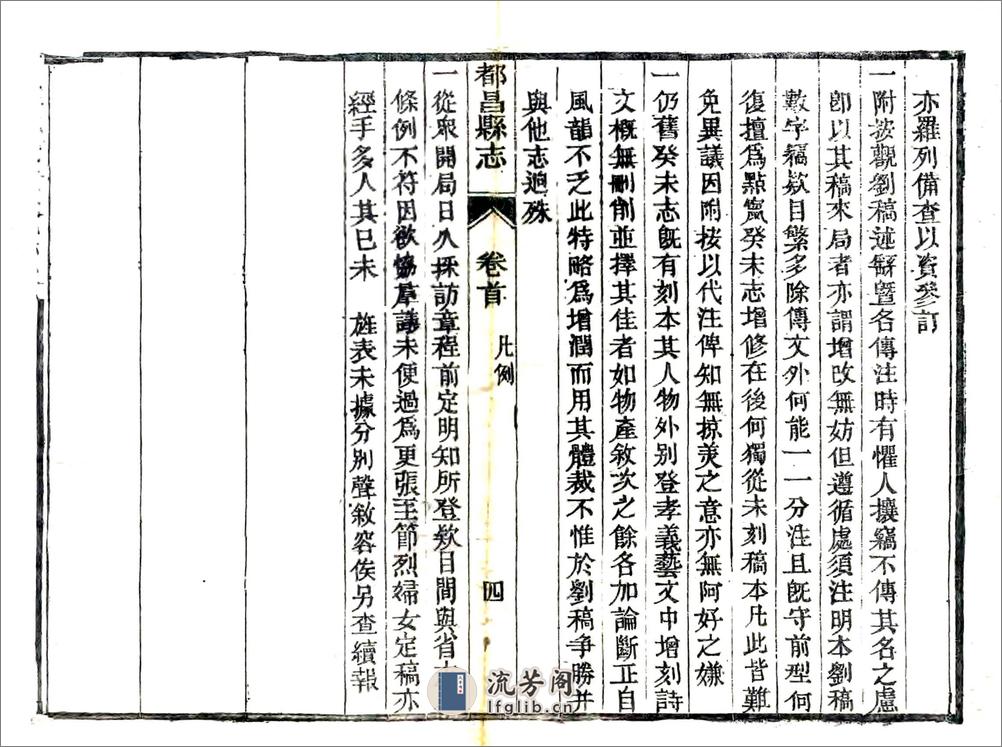 亦羅列備查以資參訂
一附按觀劉稿述辭暨各傳注時有懼人攘竊不傳其名之慮
卽以其稿來局者亦謂增改無妨但遵循處須注明本劉稿
數字竊欸目繁多除傳文外何能一一分注且旣守前型何
復擅爲點竄癸未志增修在後何獨從未刻稿本凡此皆難
免異議因附按以代注俾知無掠美之意亦無阿好之嫌
一仍舊癸未志旣有刻本其人物外別登孝義藝文中增刻詩
文概無刪削並擇其佳者如物產敘次之餘各加論斷正自
風韻不乏此特略爲增潤而用其體裁不惟於劉稿爭勝并
與他志迥殊
都昌縣志
卷首
凡例
四
一從眾開局日久採訪章程前定明知所登欸目間與省
條例不符因欲恊羣議未便過爲更張至節烈婦女定稿亦
經手多人其已未 旌表未據分別聲敘容俟另查續報
流芳阁
lfglib.cn